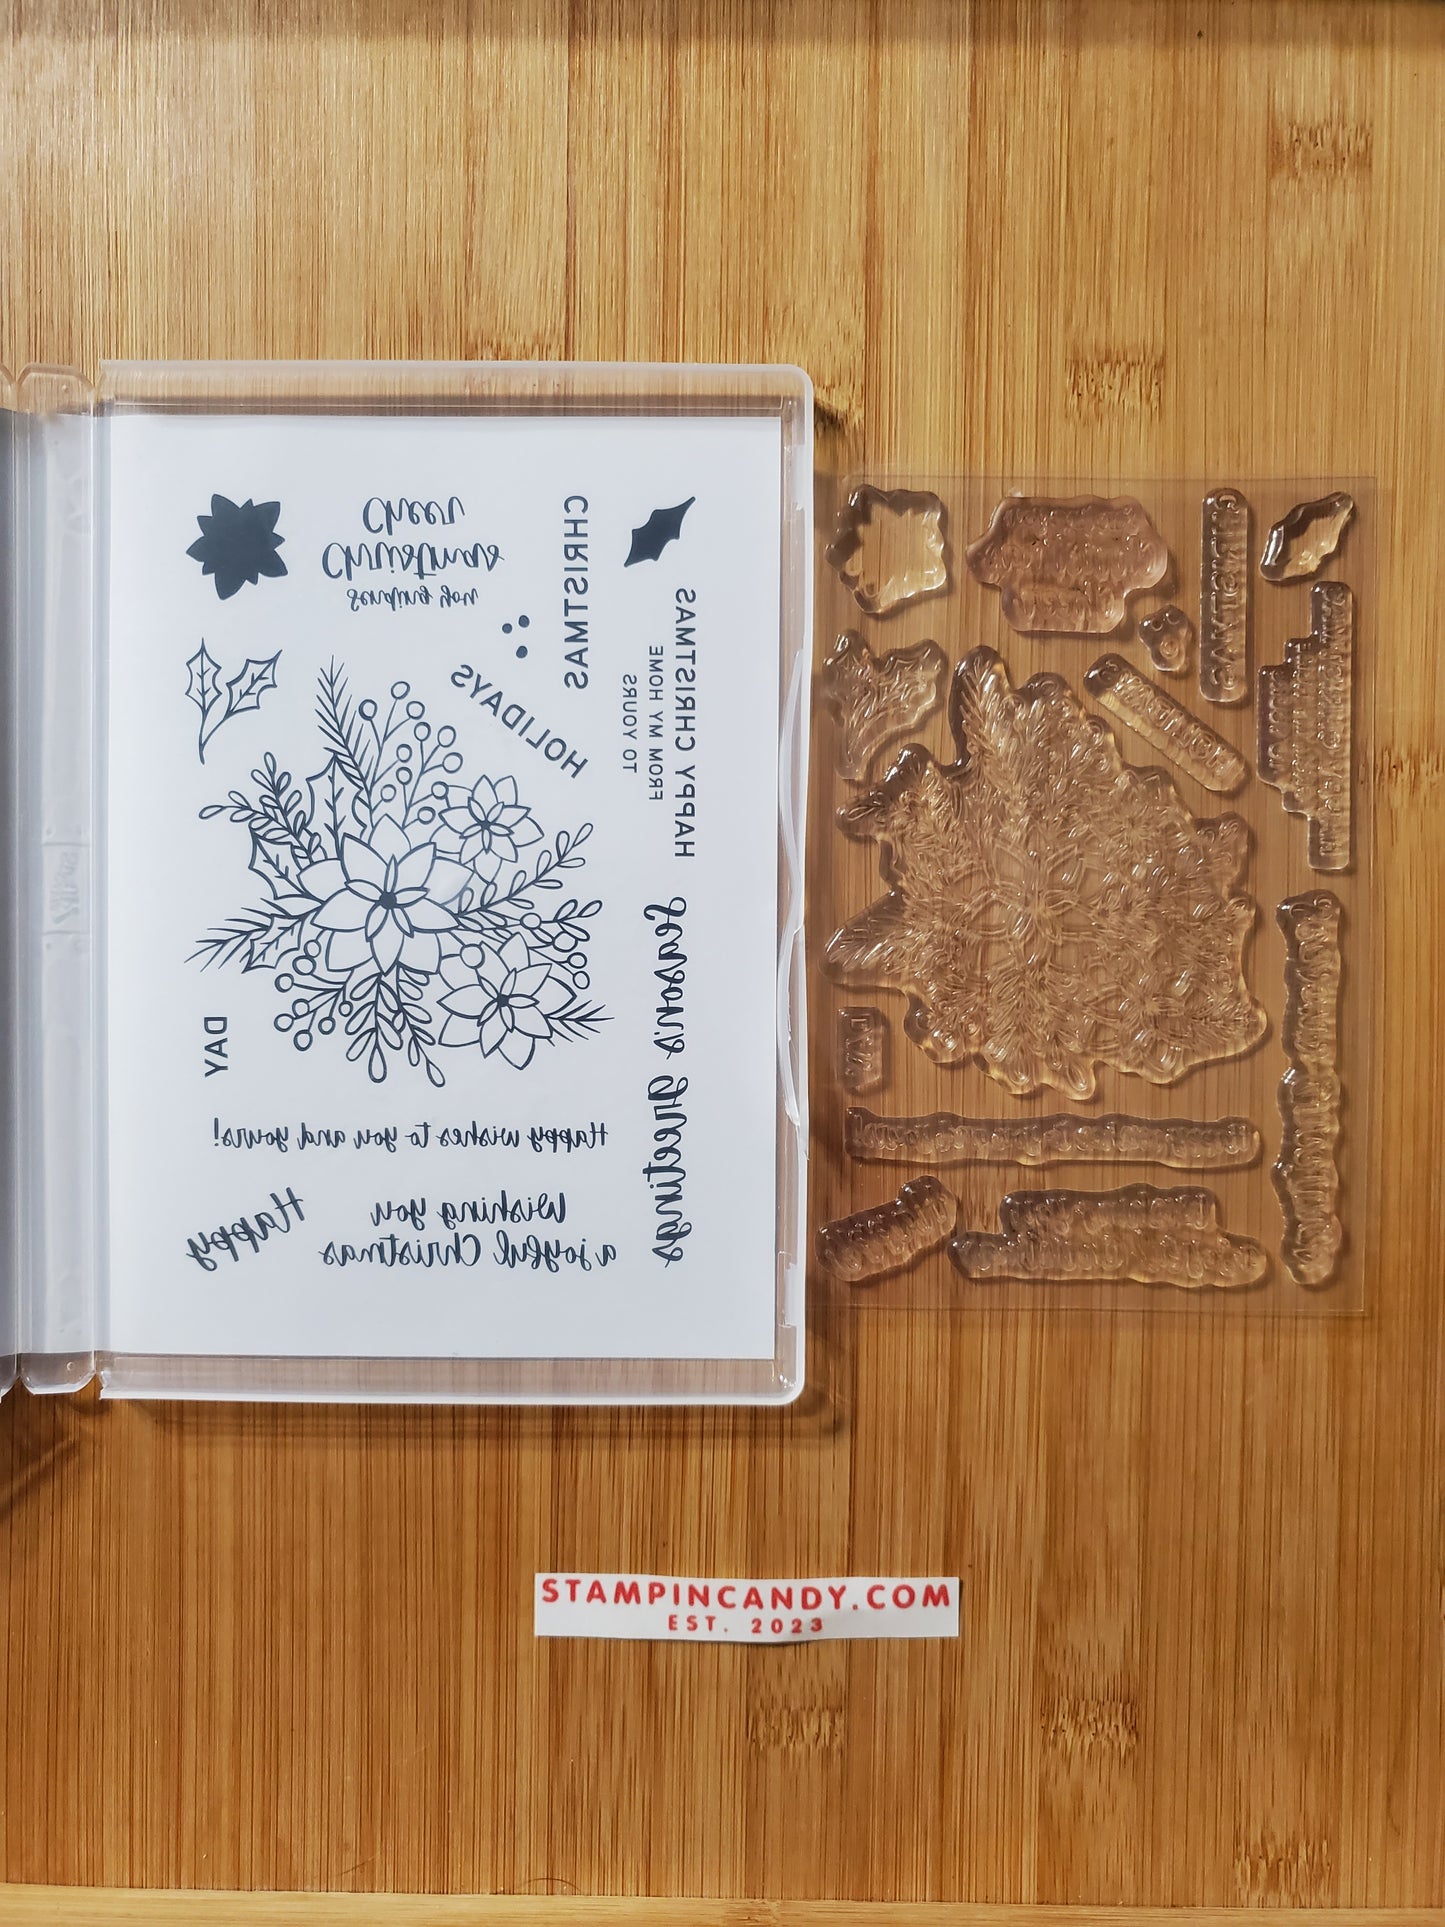 sending you
Christmas
Cheer
CHRISTMAS
HOLIDAYS
HAPPY CHRISTMAS
FROM MY HOME
TO YOURS
Season's greetings
DAY
Happy wishes to you and yours!
Happy
Wishing you
a joyful Christmas
STAMPINCANDY.COM
EST. 2023